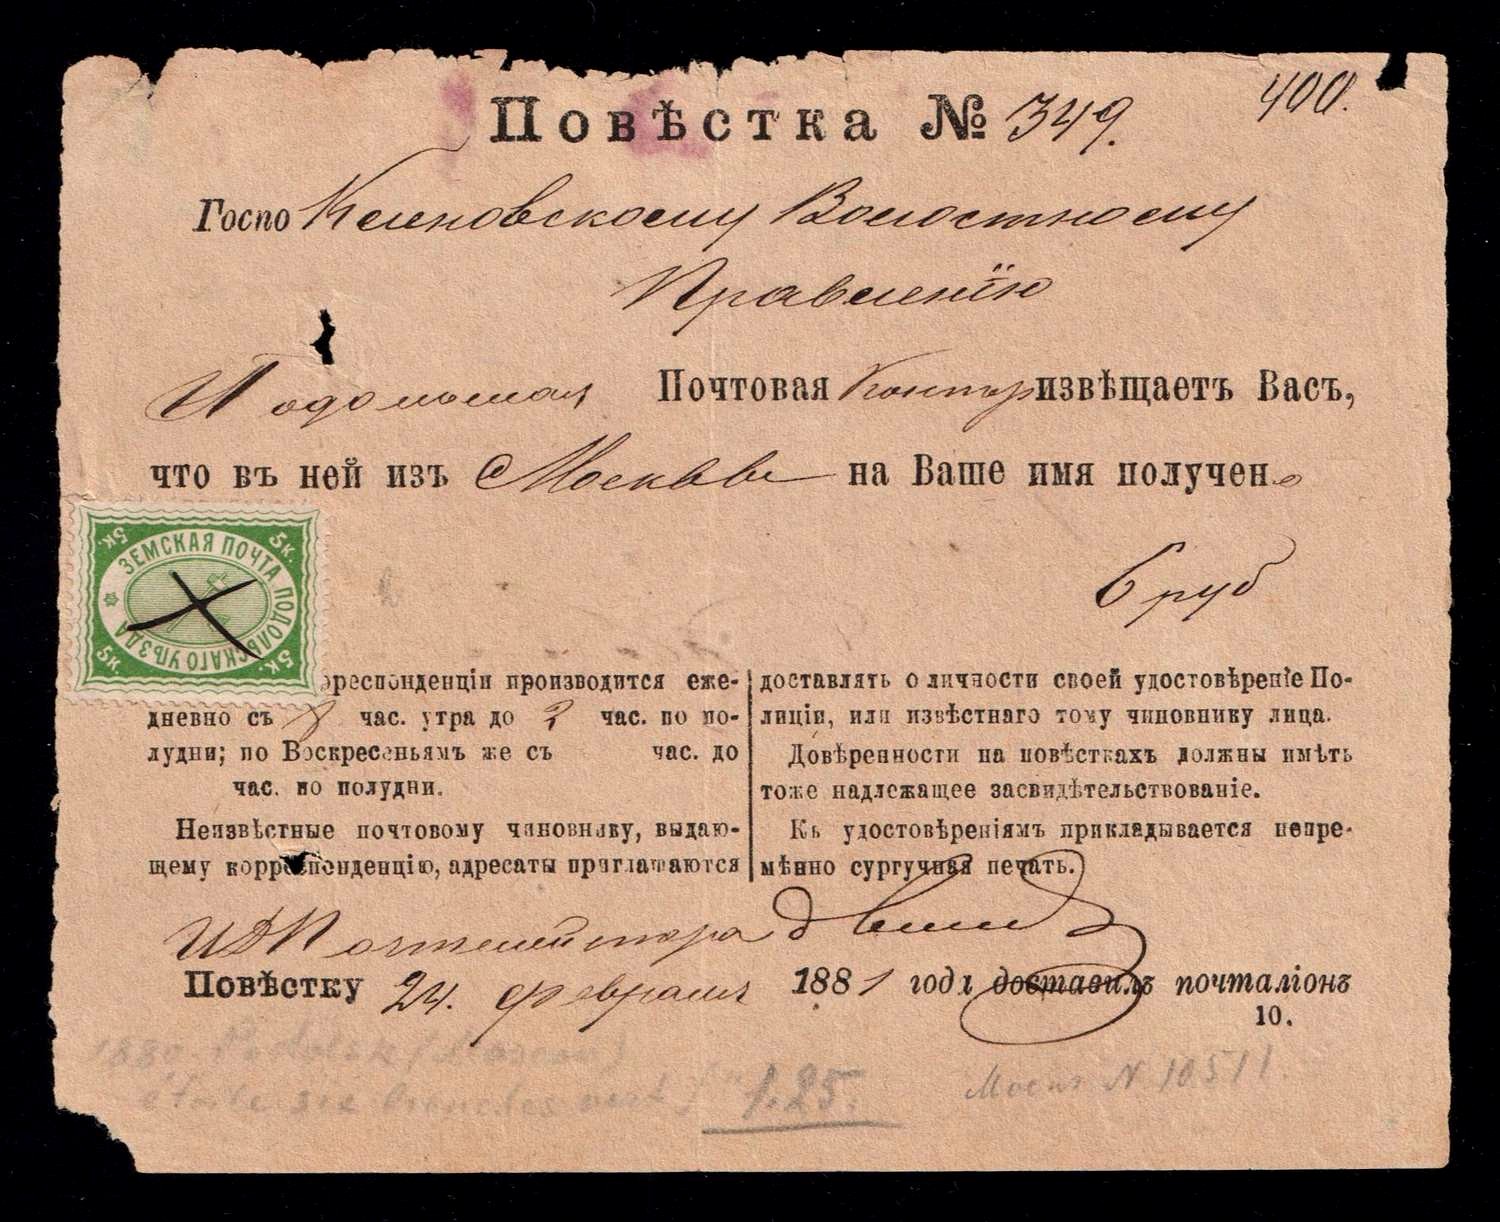 Повѣстка № 349.
400.
Госпо Кленовскому Волостному
Правленію
Подольская Почтовая Контор извѣщаетъ Васъ,
что въ ней изъ Москвы на Ваше имя получено
6 руб
5к. 5к. 5к. 5к.
ЗЕМСКАЯ ПОЧТА ПОДОЛЬСКАГО УѢЗДА
орреспонденціи производится еже-
дневно съ 8 час. утра до 2 час. по по-
лудни; по Воскресеньямъ же съ час. до
час. по полудни.
Неизвѣстные почтовому чиновнику, выдаю-
щему корреспонденцію, адресаты приглашаются
доставлять о личности своей удостовѣреніе По-
лиціи, или извѣстнаго тому чиновнику лица.
Довѣренности на повѣсткахъ должны имѣть
тоже надлежащее засвидѣтельствованіе.
Къ удостовѣреніямъ прикладывается непре-
мѣнно сургучная печать.
И Д Почтмейстера
Повѣстку 24. февраля 1881 года доставилъ почталіонъ
10.
1880. Podolsk (Moscou)
étoile six branches vert 1.25.
N 10511.